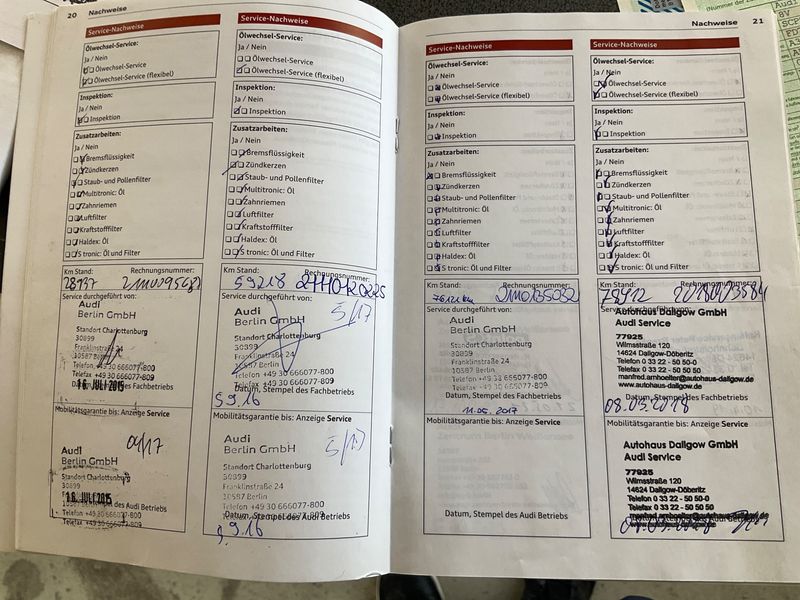 20 Nachweise
Service-Nachweise
Ölwechsel-Service:
Ja / Nein
Ölwechsel-Service
Ölwechsel-Service (flexibel)
Inspektion:
Ja / Nein
Inspektion
Zusatzarbeiten:
Ja / Nein
Bremsflüssigkeit
Zündkerzen
Staub- und Pollenfilter
Multitronic: Öl
Zahnriemen
Luftfilter
Kraftstofffilter
Haldex: Öl
S tronic: Öl und Filter
Km Stand: Rechnungsnummer:
28937
Service durchgeführt von:
Audi
Berlin GmbH
Standort Charlottenburg
30899
Franklinstraße 24
10587 Berlin
Telefon +49 30 666077-800
Telefax +49 30 666077-809
16. JULI 2015
Datum, Stempel des Fachbetriebs
Mobilitätsgarantie bis: Anzeige Service
04/17
Audi
Berlin GmbH
Standort Charlottenburg
30899
16. JULI 2015
Datum, Stempel des Audi Betriebs
Telefax +49 30 666077-809
Service-Nachweise
Ölwechsel-Service:
Ja / Nein
Ölwechsel-Service
Ölwechsel-Service (flexibel)
Inspektion:
Ja / Nein
Inspektion
Zusatzarbeiten:
Ja / Nein
Bremsflüssigkeit
Zündkerzen
Staub- und Pollenfilter
Multitronic: Öl
Zahnriemen
Luftfilter
Kraftstofffilter
Haldex: Öl
S tronic: Öl und Filter
Km Stand: Rechnungsnummer:
59218
Service durchgeführt von:
5/17
Audi
Berlin GmbH
Standort Charlottenburg
30899
Franklinstraße 24
10587 Berlin
Telefon +49 30 666077-800
Telefax +49 30 666077-809
Datum, Stempel des Fachbetriebs
5.9.16
Mobilitätsgarantie bis: Anzeige Service
Audi
Berlin GmbH
Standort Charlottenburg
30899
Franklinstraße 24
10587 Berlin
Telefon +49 30 666077-800
Datum, Stempel des Audi Betriebs
5.9.16
Nachweise 21
Service-Nachweise
Ölwechsel-Service:
Ja / Nein
Ölwechsel-Service
Ölwechsel-Service (flexibel)
Inspektion:
Ja / Nein
Inspektion
Zusatzarbeiten:
Ja / Nein
Bremsflüssigkeit
Zündkerzen
Staub- und Pollenfilter
Multitronic: Öl
Zahnriemen
Luftfilter
Kraftstofffilter
Haldex: Öl
S tronic: Öl und Filter
Km Stand: Rechnungsnummer:
Service durchgeführt von:
Audi
Berlin GmbH
Standort Charlottenburg
30899
Franklinstraße 24
10587 Berlin
Telefon +49 30 666077-800
Telefax +49 30 666077-809
Datum, Stempel des Fachbetriebs
11.05.2017
Mobilitätsgarantie bis: Anzeige Service
Datum, Stempel des Audi Betriebs
Service-Nachweise
Ölwechsel-Service:
Ja / Nein
Ölwechsel-Service
Ölwechsel-Service (flexibel)
Inspektion:
Ja / Nein
Inspektion
Zusatzarbeiten:
Ja / Nein
Bremsflüssigkeit
Zündkerzen
Staub- und Pollenfilter
Multitronic: Öl
Zahnriemen
Luftfilter
Kraftstofffilter
Haldex: Öl
S tronic: Öl und Filter
Km Stand: Rechnungsnummer:
Service durchgeführt von:
Autohaus Dallgow GmbH
Audi Service
77925
Wilmsstraße 120
14624 Dallgow-Döberitz
Telefon 0 33 22 - 50 50-0
Telefax 0 33 22 - 50 50 50
manfred.arnhoelter@autohaus-dallgow.de
www.autohaus-dallgow.de
Datum, Stempel des Fachbetriebs
08.03.2018
Mobilitätsgarantie bis: Anzeige Service
Autohaus Dallgow GmbH
Audi Service
77925
Wilmsstraße 120
14624 Dallgow-Döberitz
Telefon 0 33 22 - 50 50-0
Telefax 0 33 22 - 50 50 50
Datum, Stempel des Audi Betriebs